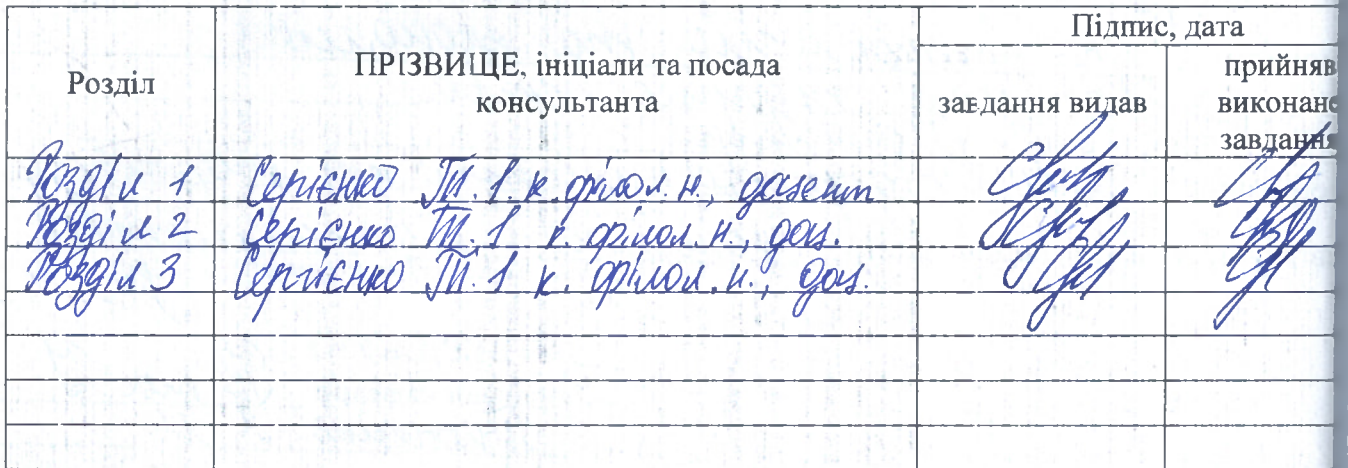 Підпис, дата
Розділ
ПРІЗВИЩЕ, ініціали та посада
консультанта
завдання видав
прийняв
виконане
завдання
Розділ 1 Сергієнко Т. І. к. філол. н., доцент
Розділ 2 Сергієнко Т. І к. філол. н., доц.
Розділ 3 Сергієнко Т. І к. філол. н., доц.